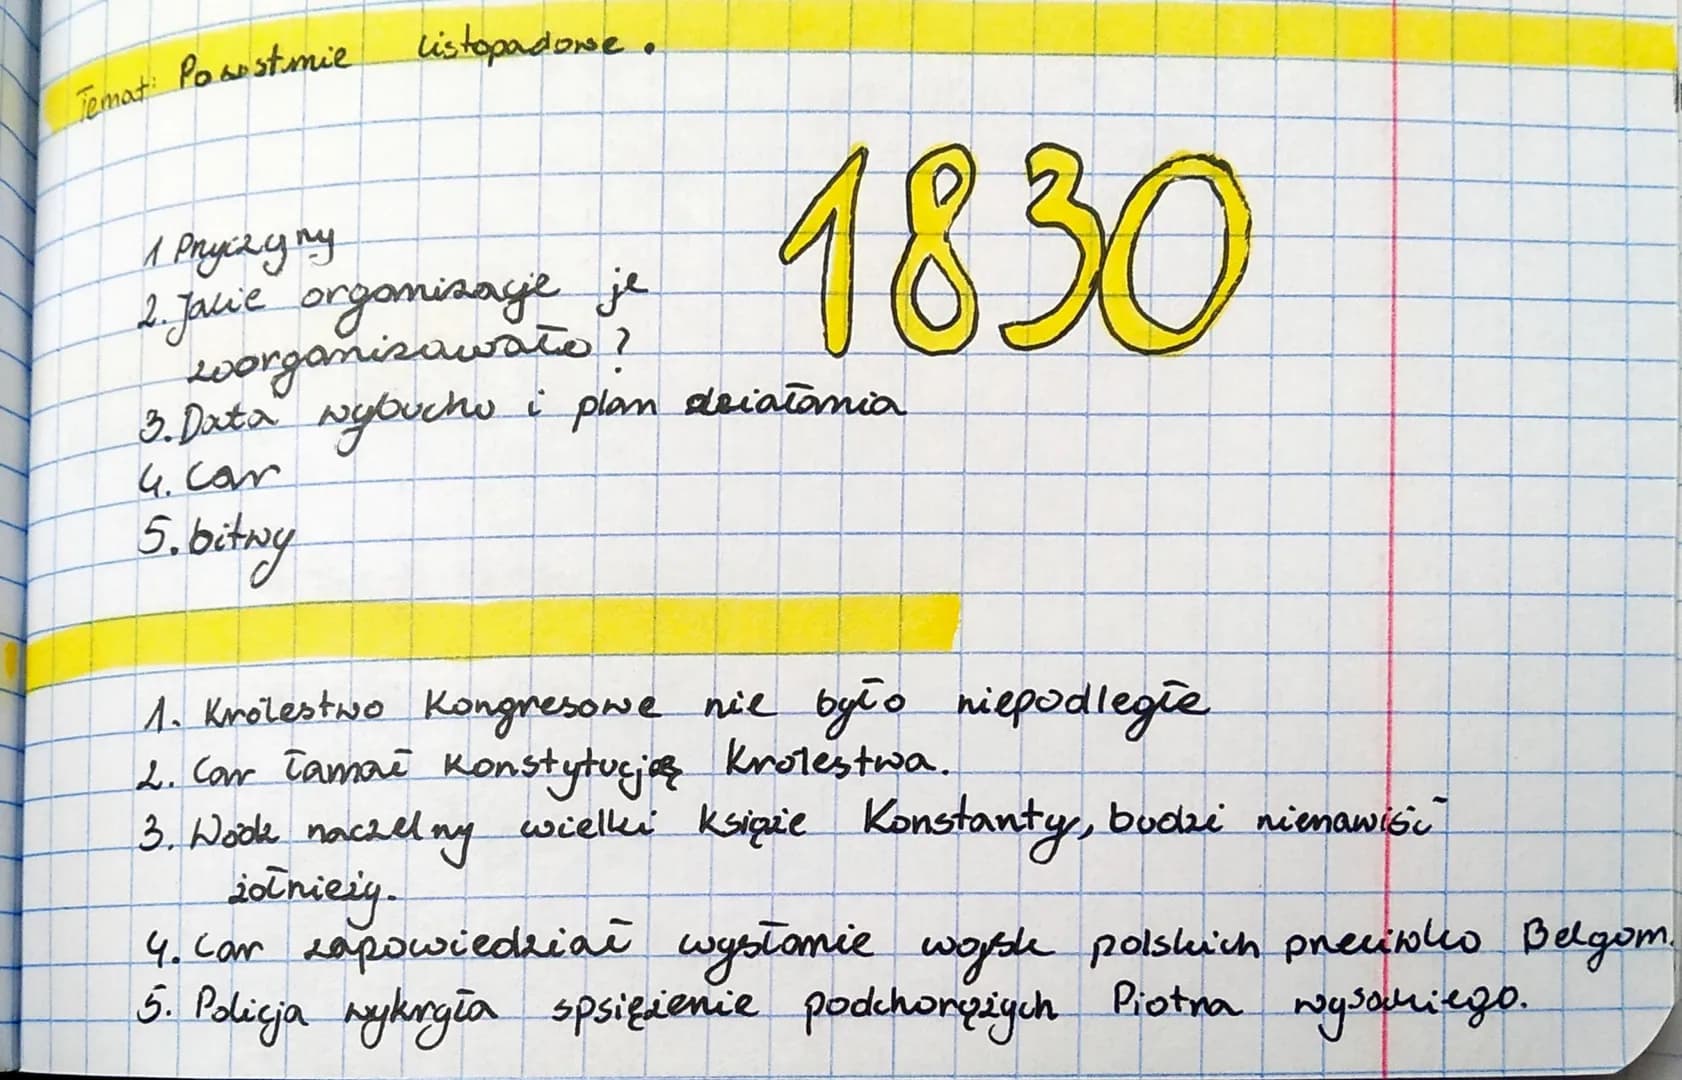 Temat: Powstanie listopadowe.
1830
1 Przyczyny
2. Jakie organizacje je
zorganizowało?
3. Data wybuchu i plan działania
4. Car
5. bitwy
1. Królestwo Kongresowe nie było niepodległe
2. Car łamał konstytucję Królestwa.
3. Wódz naczelny wielki książe Konstanty, budzi nienawiść
żołnieży.
4. Car zapowiedział wysłanie wojsk polskich przeciwko Belgom.
5. Policja wykryła spsiężenie podchorężych Piotra wysockiego.